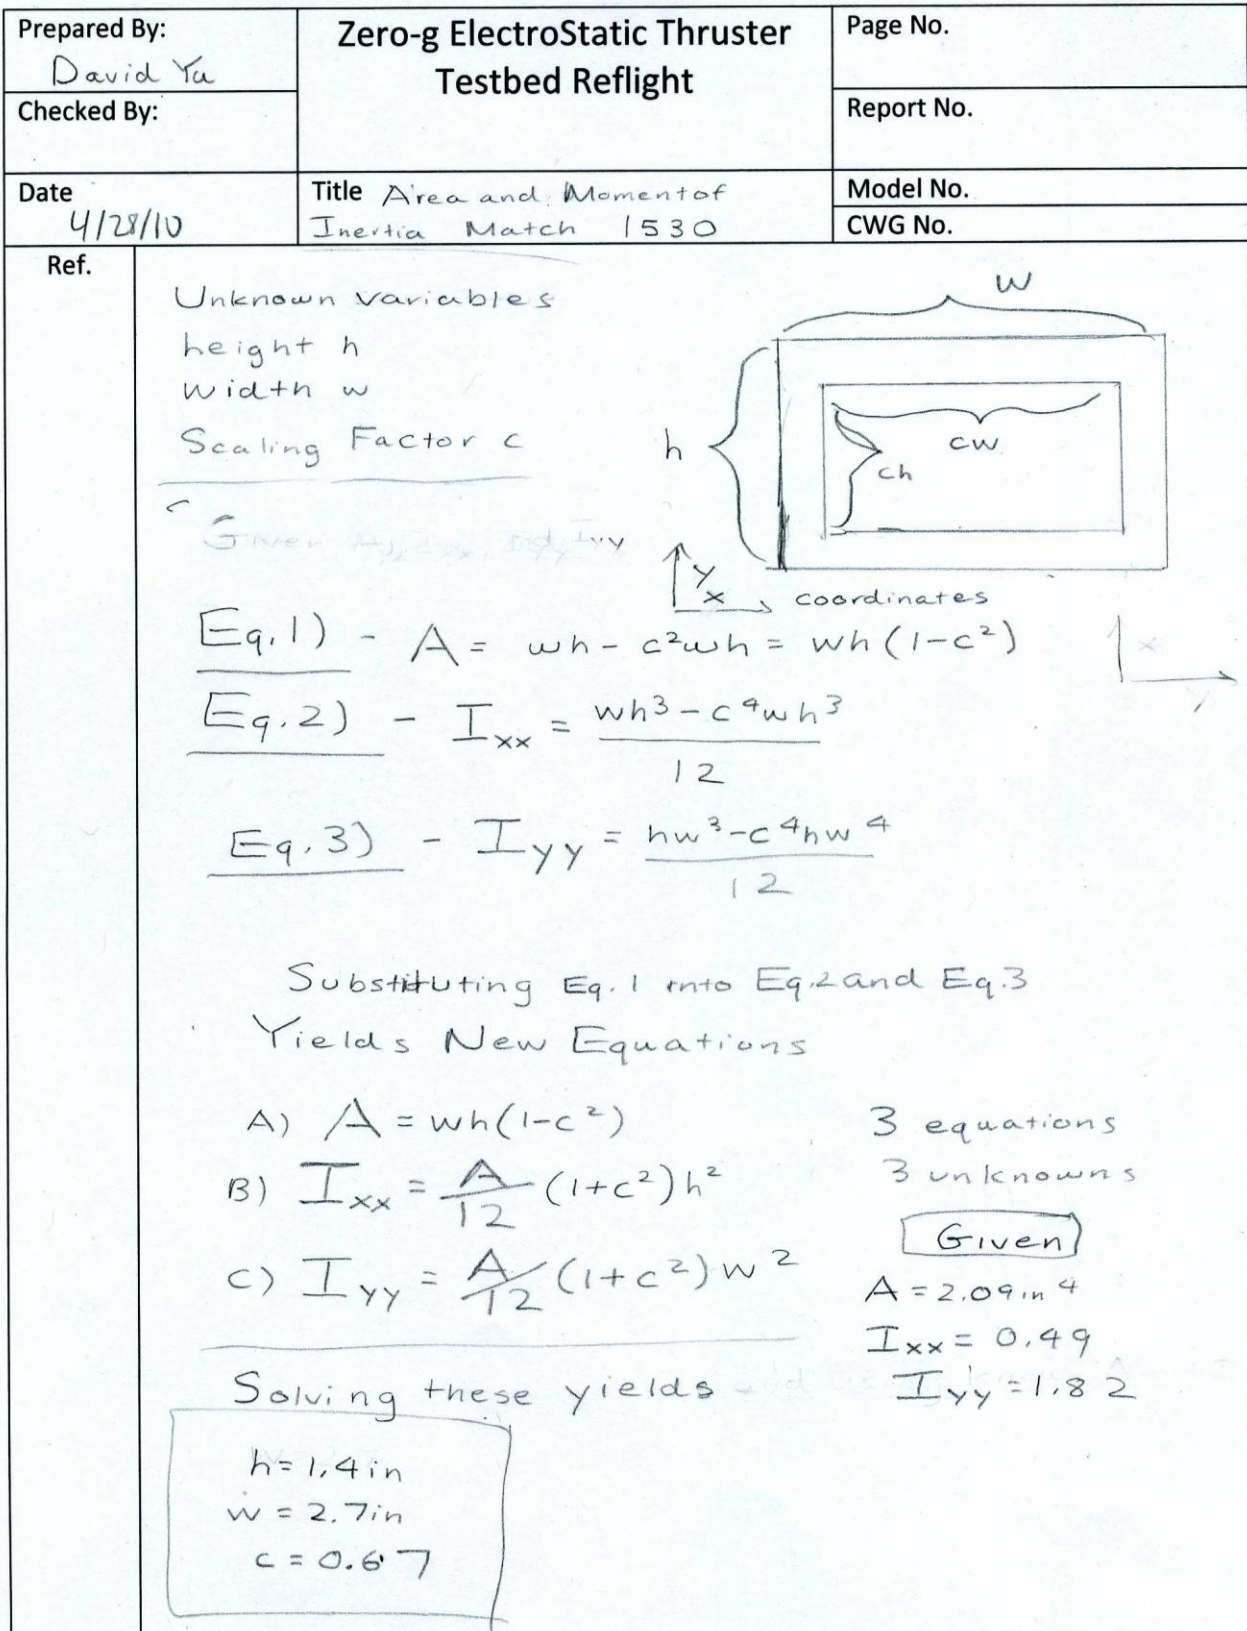 Prepared By:
David Yu
Checked By:
Date
4/28/10
Zero-g ElectroStatic Thruster
Testbed Reflight
Title Area and Moment of
Inertia Match 1530
Page No.
Report No.
Model No.
CWG No.
Ref.
Unknown variables
height h
width w
Scaling Factor c
w
h
cw
ch
Given A, Ixx, and Iyy
y
x
coordinates
x
y
Eq. 1) - A = wh - c²wh = wh(1-c²)
Eq. 2) - Ixx = wh³ - c⁴wh³
12
Eq. 3) - Iyy = hw³ - c⁴hw⁴
12
Substituting Eq. 1 into Eq. 2 and Eq. 3
Yields New Equations
A) A = wh(1-c²)
B) Ixx = A/12 (1+c²)h²
C) Iyy = A/12 (1+c²)w²
3 equations
3 unknowns
Given
A = 2.09 in 4
Ixx = 0.49
Iyy = 1.82
Solving these yields
h = 1.4 in
w = 2.7 in
c = 0.67